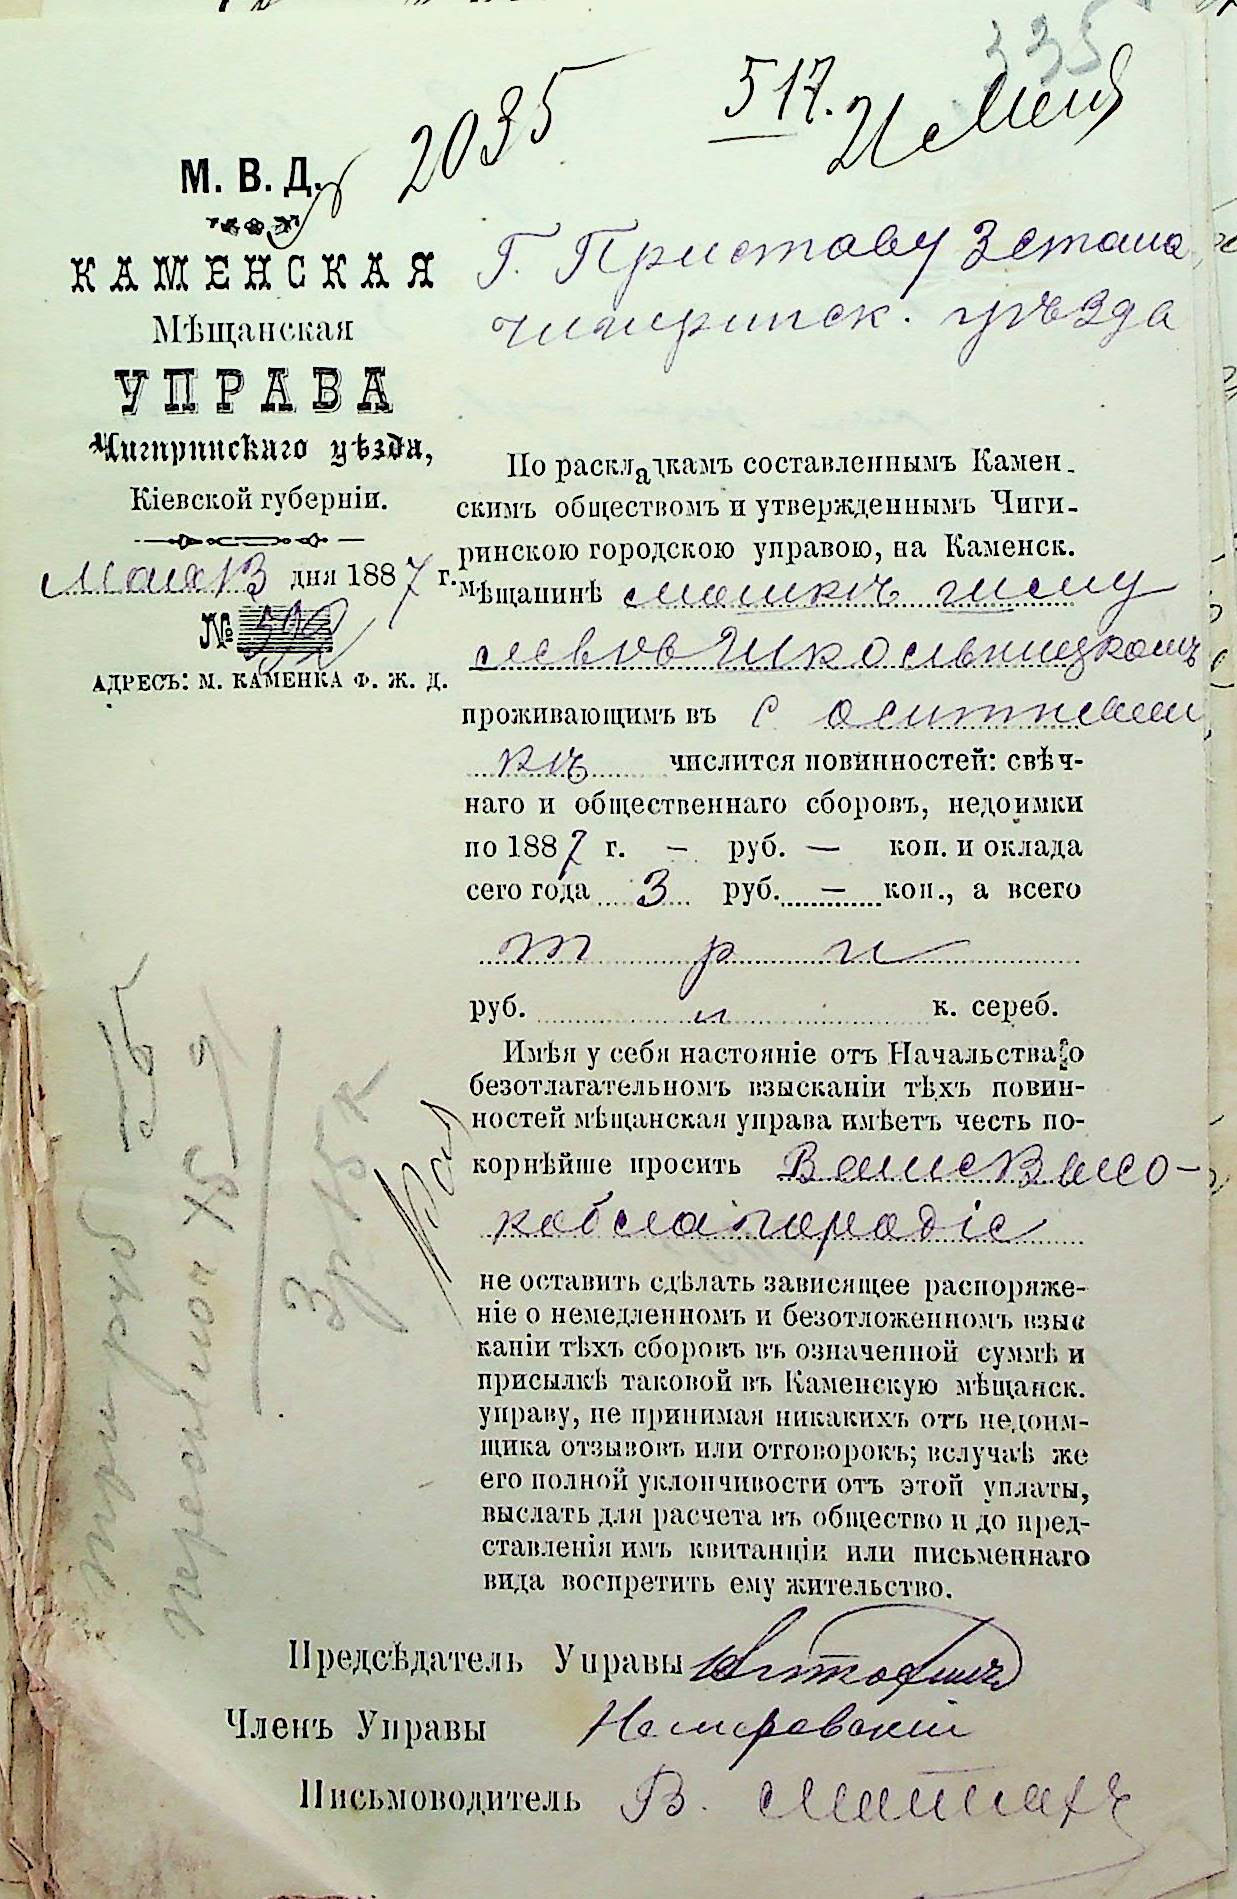 335
2035
517. 21 Мая
М. В. Д.
КАМЕНСКАЯ
Мѣщанская
УПРАВА
Чигиринскаго уѣзда,
Кіевской губерніи.
Мая 13 дня 1887 г.
№
АДРЕСЪ: М. КАМЕНКА Ф. Ж. Д.
Г. Приставу 3 стана
Чигиринск. уѣзда
По раскладкамъ составленнымъ Камен-
скимъ обществомъ и утвержденнымъ Чиги-
ринскою городскою управою, на Каменск.
мѣщанинѣ
Школьницкомъ
проживающимъ въ с Оситняж
кѣ числится повинностей: свѣч-
наго и общественнаго сборовъ, недоимки
по 1887 г. – руб. — коп. и оклада
сего года 3 руб. — коп., а всего
три
руб. " к. сереб.
Имѣя у себя настояніе отъ Начальства о
безотлагательномъ взысканіи тѣхъ повин-
ностей мѣщанская управа имѣетъ честь по-
корнѣйше просить Ваше Высо-
коблагородіе
не оставить сдѣлать зависящее распоряже-
ніе о немедленномъ и безотложенномъ взыс
каніи тѣхъ сборовъ въ означенной суммѣ и
присылкѣ таковой въ Каменскую мѣщанск.
управу, не принимая никакихъ отъ недоим-
щика отзывовъ или отговорокъ; вслучаѣ же
его полной уклончивости отъ этой уплаты,
выслать для расчета въ общество и до пред-
ставленія имъ квитанціи или письменнаго
вида воспретить ему жительство.
три руб
3 р 15 к
Предсѣдатель Управы
Членъ Управы Немировскій
Письмоводитель В.